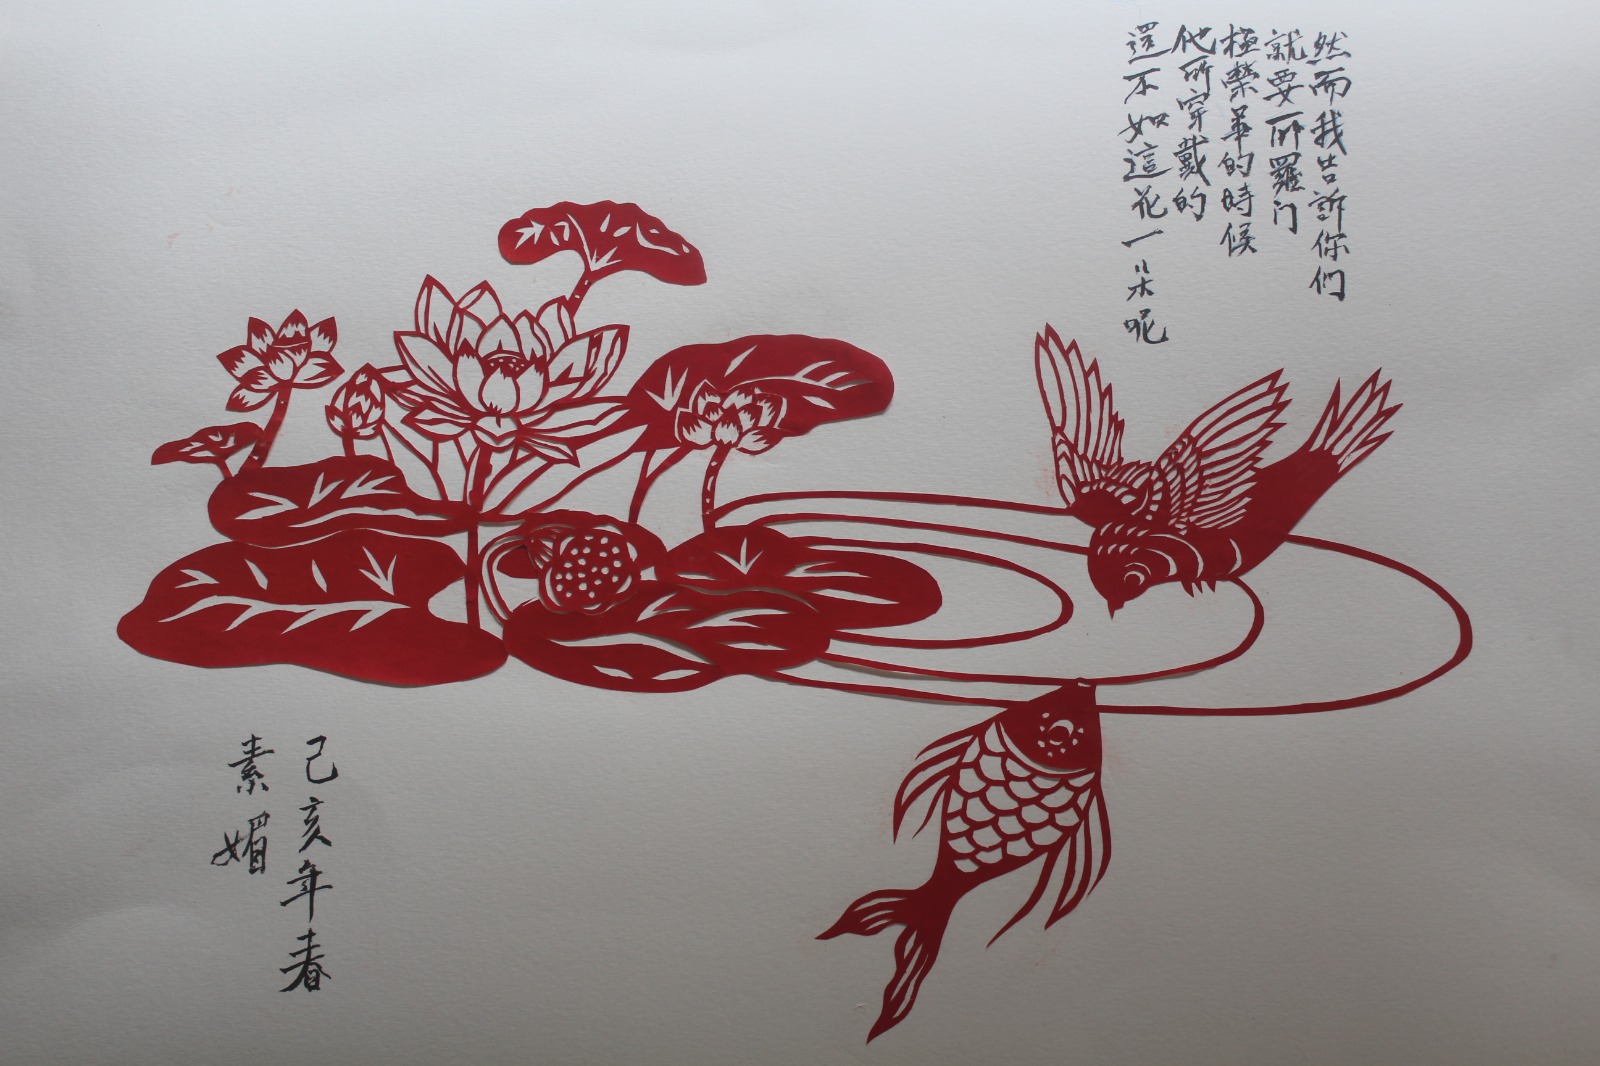 然而我告訴你們
就要所羅门
極榮華的時候
他所穿戴的
還不如這花一朵呢
己亥年春
素媚